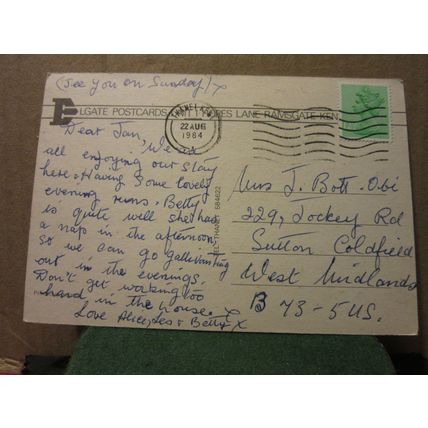 (See you on Sunday!) x
ELGATE POSTCARDS UNIT LANE RAMSGATE KEN
THANET KENT
22 AUG
1984
Dear Jan, We are
all enjoying our stay
here. Having some lovely
evening runs. Betty
is quite well she has
a nap in the afternoon
so we can go gallivanting
out in the evenings.
Don't get working too
hard in the house. x
Love Alice, Les & Betty x
584622
Mrs J. Bott. Obi
229, Jockey Rd
Sutton Coldfield
West Midlands
B 73-5US.